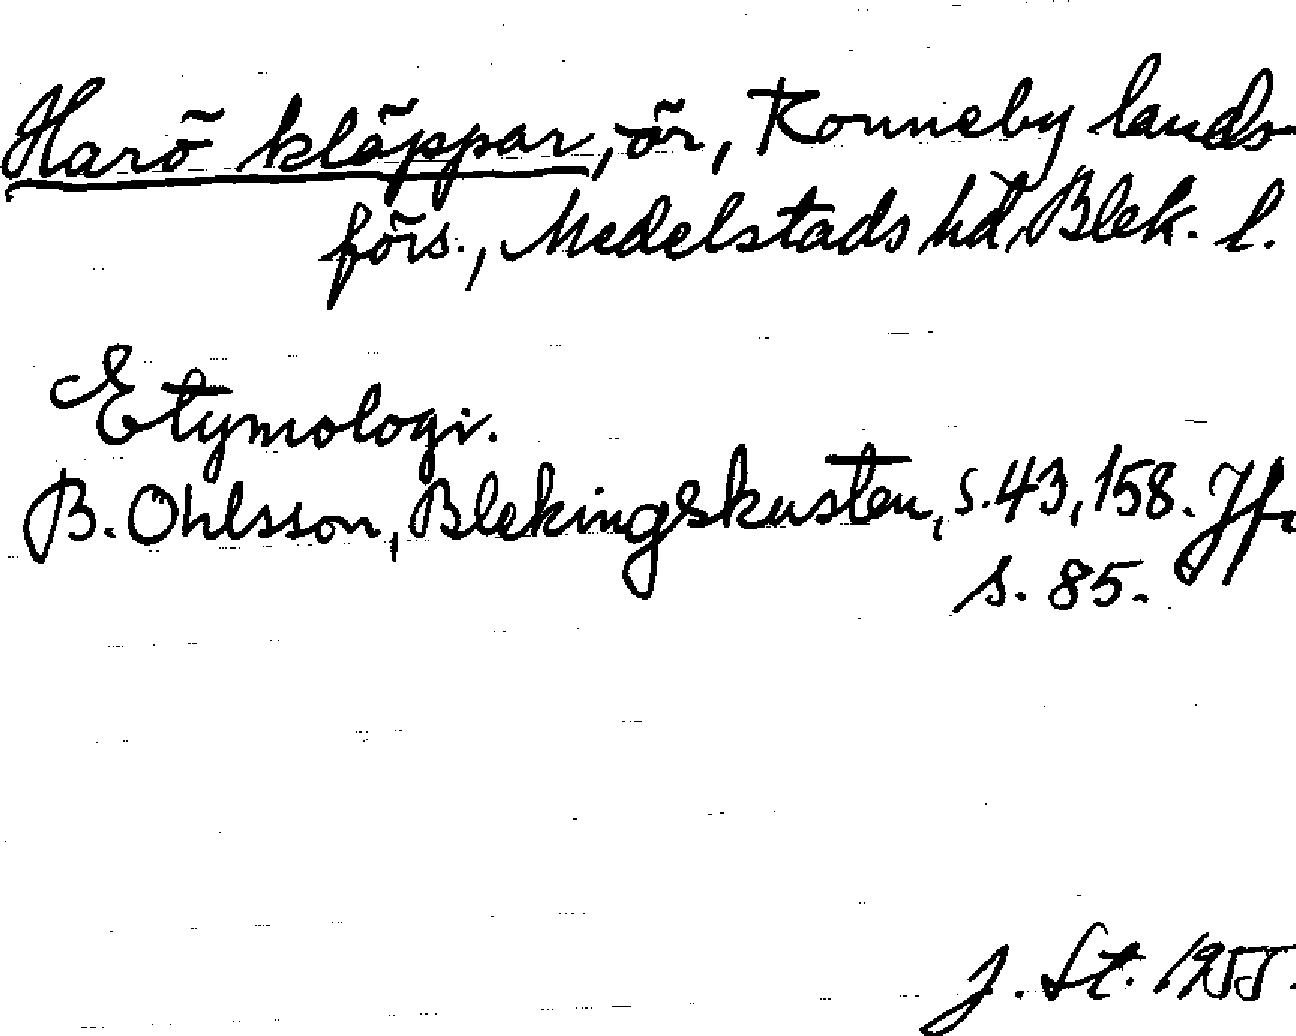 Harö kläppar, öar, Ronneby lands-
förs., Medelstads hd, Blek. l.
Etymologi.
B. Ohlsson, Blekingskusten, s. 43, 158. Jfr
s. 85.
J. St. 1955.